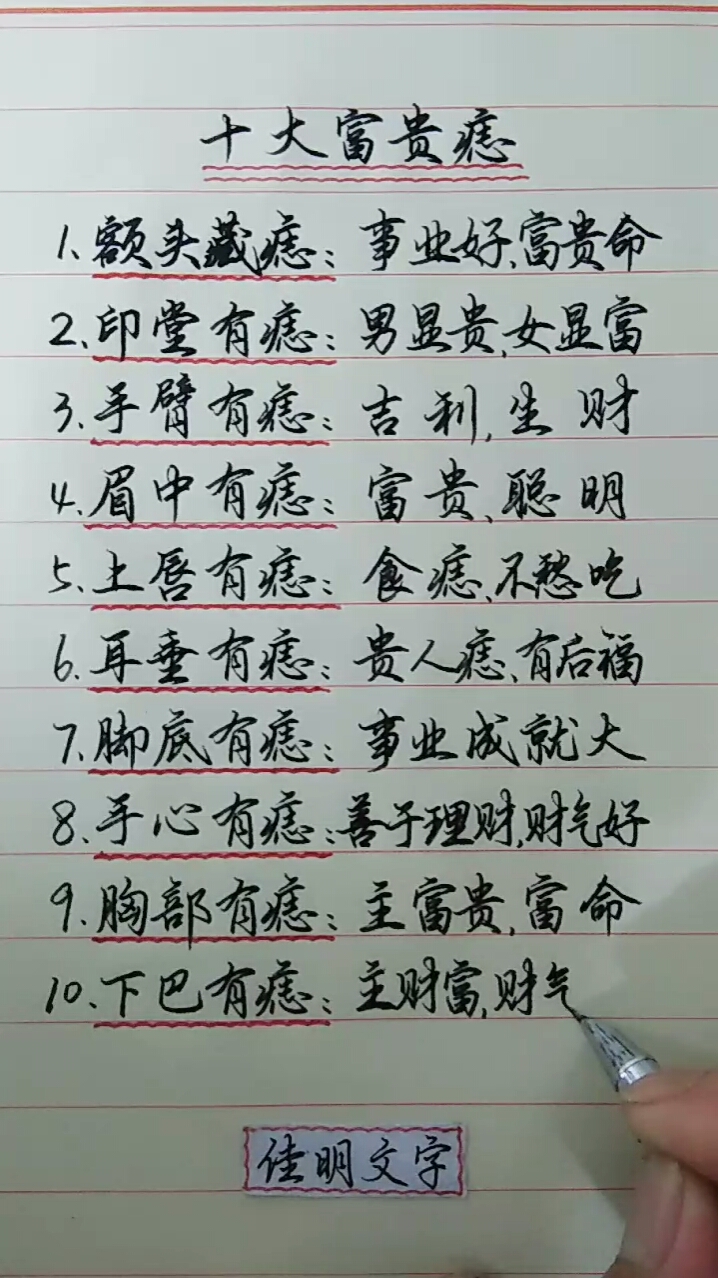 十大富贵痣
1.额头藏痣：事业好，富贵命
2.印堂有痣：男显贵，女显富
3.手臂有痣：吉利，生财
4.眉中有痣：富贵、聪明
5.上唇有痣：食痣，不愁吃
6.耳垂有痣：贵人痣，有后福
7.脚底有痣：事业成就大
8.手心有痣：善于理财，财气好
9.胸部有痣：主富贵，富命
10.下巴有痣：主财富，财气
佳明文字